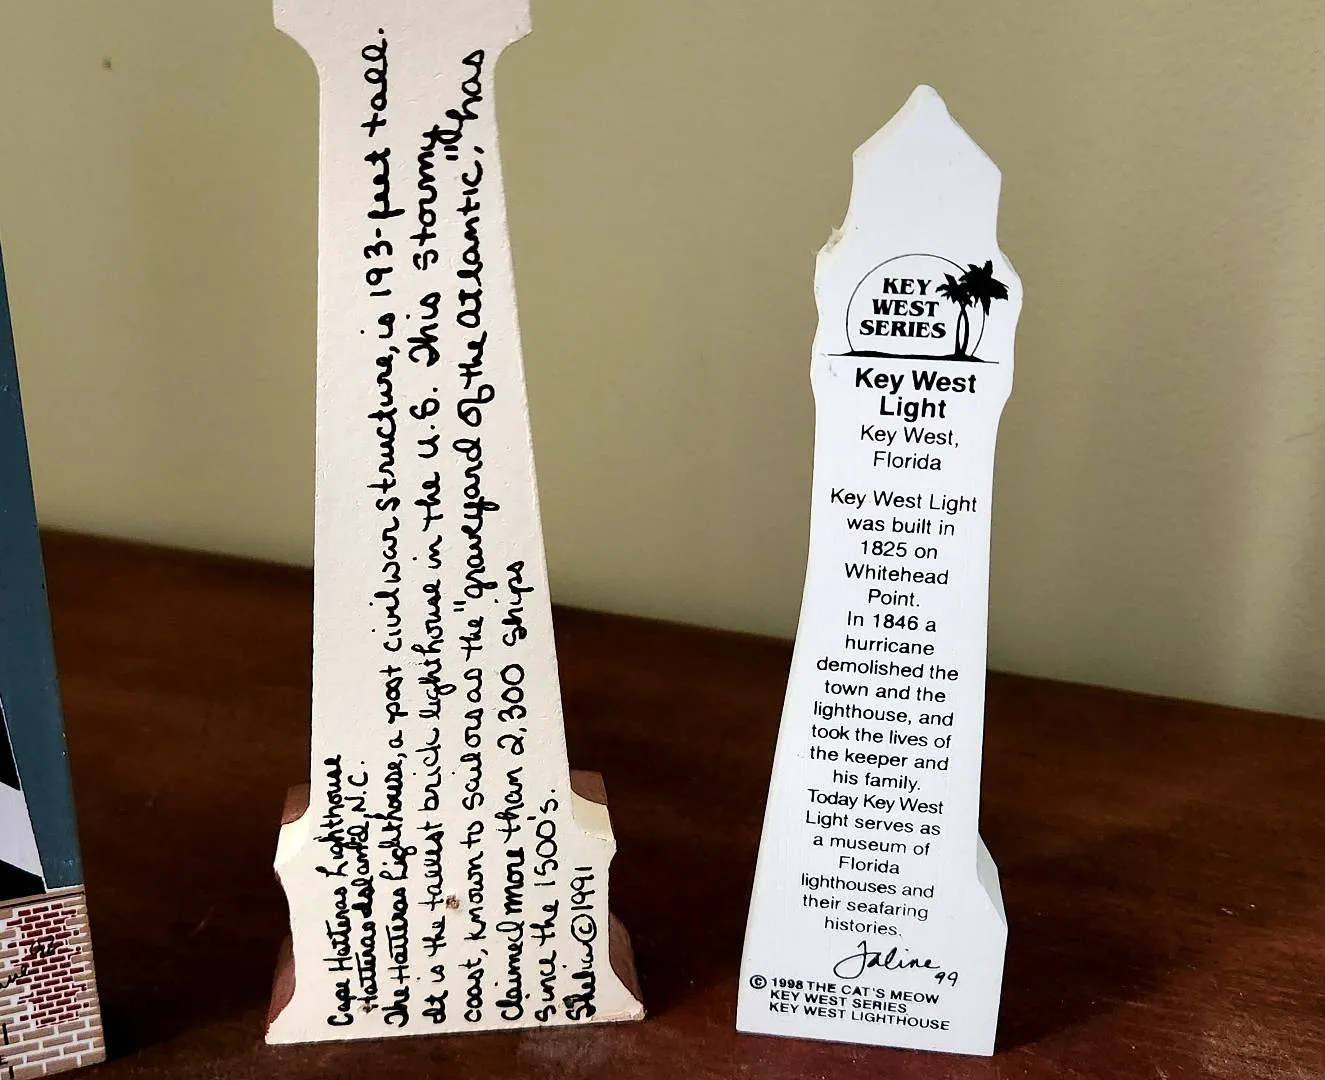 Cape Hatteras Lighthouse
Hatteras Island, N.C.
The Hatteras Lighthouse, a post civil war structure, is 193-feet tall.
It is the tallest brick lighthouse in the U.S. This stormy
coast, known to sailors as the "graveyard of the Atlantic," has
claimed more than 2,300 ships
since the 1500's.
Shelia ©1991
KEY
WEST
SERIES
Key West
Light
Key West,
Florida
Key West Light
was built in
1825 on
Whitehead
Point.
In 1846 a
hurricane
demolished the
town and the
lighthouse, and
took the lives of
the keeper and
his family.
Today Key West
Light serves as
a museum of
Florida
lighthouses and
their seafaring
histories.
Faline
99
© 1998 THE CAT'S MEOW
KEY WEST SERIES
KEY WEST LIGHTHOUSE